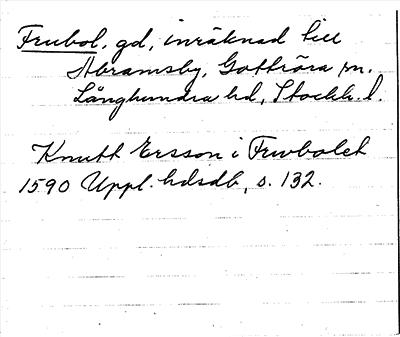 Frubol, gd, inräknad till
Abramsby, Gottröra sn.
Långhundra hd, Stockh. l.
Knutt Ersson i Fruvbolet
1590 Uppl. hdsdb, s. 132.